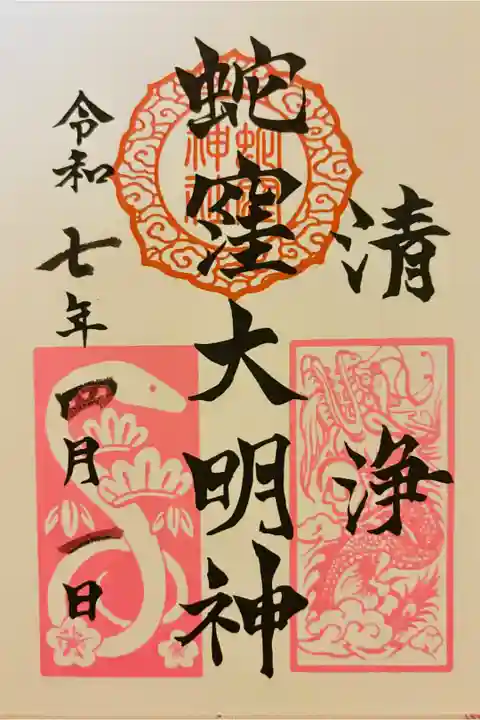 清浄
蛇窪大明神
蛇窪神社
令和七年四月一日